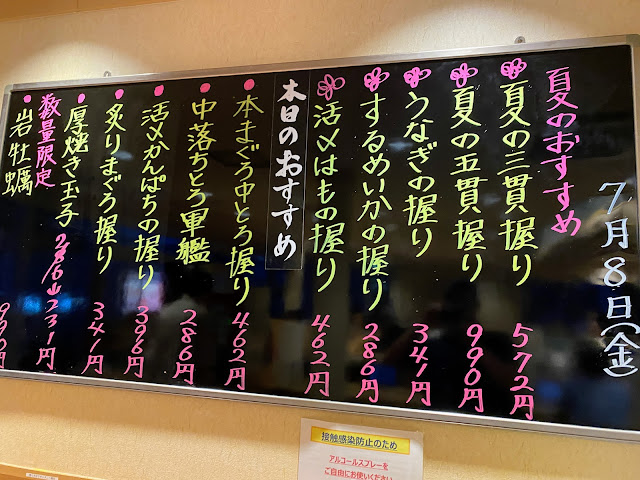 7月8日(金)
夏のおすすめ
夏の三貫握り 572円
夏の五貫握り 990円
うなぎの握り 341円
するめいかの握り 286円
活〆はもの握り 462円
本日のおすすめ
本まぐろ中とろ握り 462円
中落ちとろ軍艦 286円
活〆かんぱちの握り 396円
炙りまぐろ握り 341円
厚焼き玉子 286山231円
数量限定
岩牡蠣 990円
接触感染防止のため
アルコールスプレーを
ご自由にお使いください